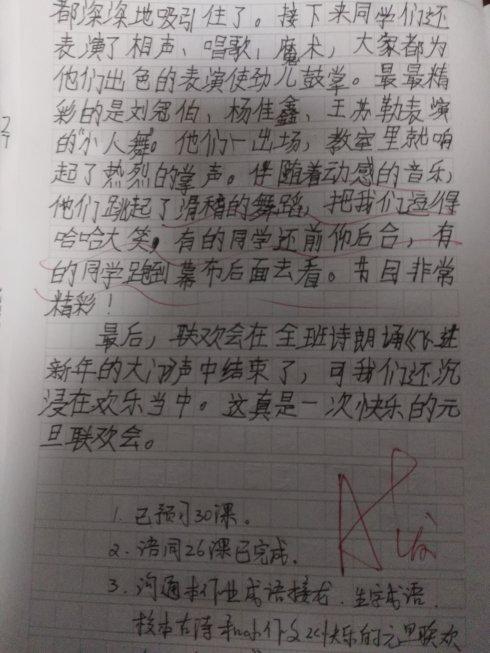 都深深地吸引住了。接下来同学们还
表演了相声、唱歌、魔术，大家都为
他们出色的表演使劲儿鼓掌。最最精
彩的是刘冠伯、杨佳鑫、王苏勒表演
的“小人舞”。他们一出场，教室里就响
起了热烈的掌声。伴随着动感的音乐，
他们跳起了滑稽的舞蹈，把我们逗得
哈哈大笑，有的同学还前仰后合，有
的同学跑到幕布后面去看。节目非常
精彩！
最后，联欢会在全班诗朗诵《飞进
新年的大门》声中结束了，可我们还沉
浸在欢乐当中。这真是一次快乐的元
旦联欢会。
A
1. 已预习30课。
2. 语同26课已完成。
3. 沟通本作业成语接龙、生字成语
校本古诗 作文2《快乐的元旦联欢